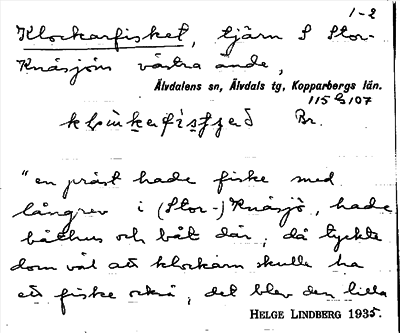 1-2
Klockarfisket, tjärn S Stor-
Knäsjöns västra ände,
Älvdalens sn, Älvdals tg, Kopparbergs län.
Br.
"en präst hade fiske med
långrev i (Stor-)Knäsjö, hade
båthus och båt där, då tyckte
dom väl att klockarn skulle ha
ett fiske också, det blev den lilla
HELGE LINDBERG 1935.